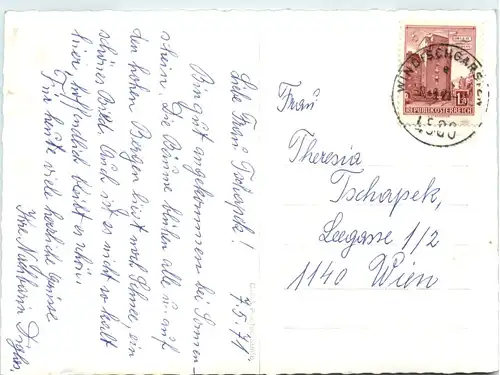 7.5.71
Liebe Frau Tschapek!
Bin gut angekommen bei Sonnen-
schein. Die Bäume blühen alle u. auf
den hohen Bergen liegt noch Schnee, ein
schönes Bild. Auch ist es nicht so kalt
hier, hoffentlich bleibt es schön.
Für heute viele herzliche Grüsse
Ihre Nachbarin
WINDISCHGARSTEN
4580
REPUBLIK ÖSTERREICH
Frau
Theresia
Tschapek,
Leegasse 1/2
1140 Wien